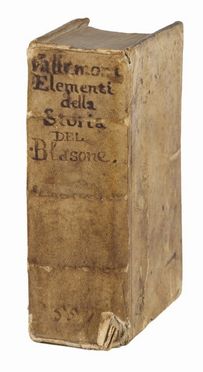 Vallemont
Elementi
della
Storia
DEL
Blasone.